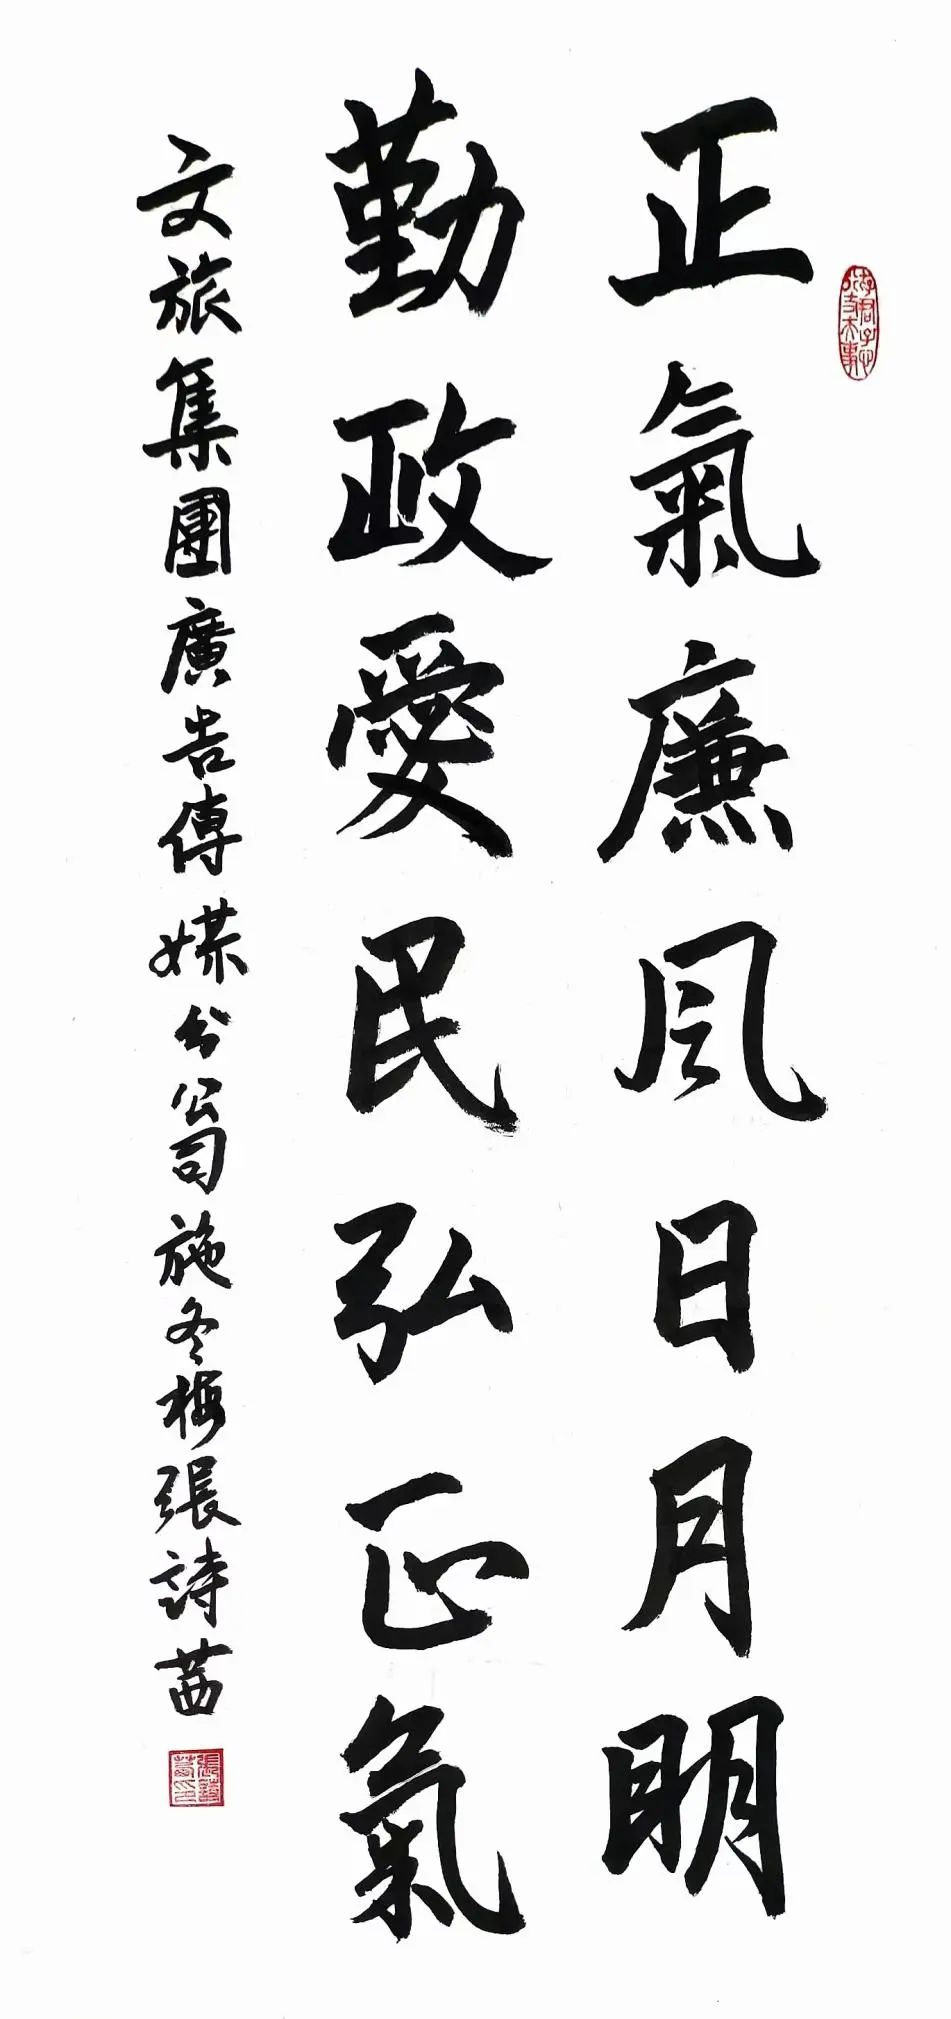 正氣廉风日月明
勤政愛民弘正氣
文旅集團廣告傳媒分公司施冬梅張詩茜